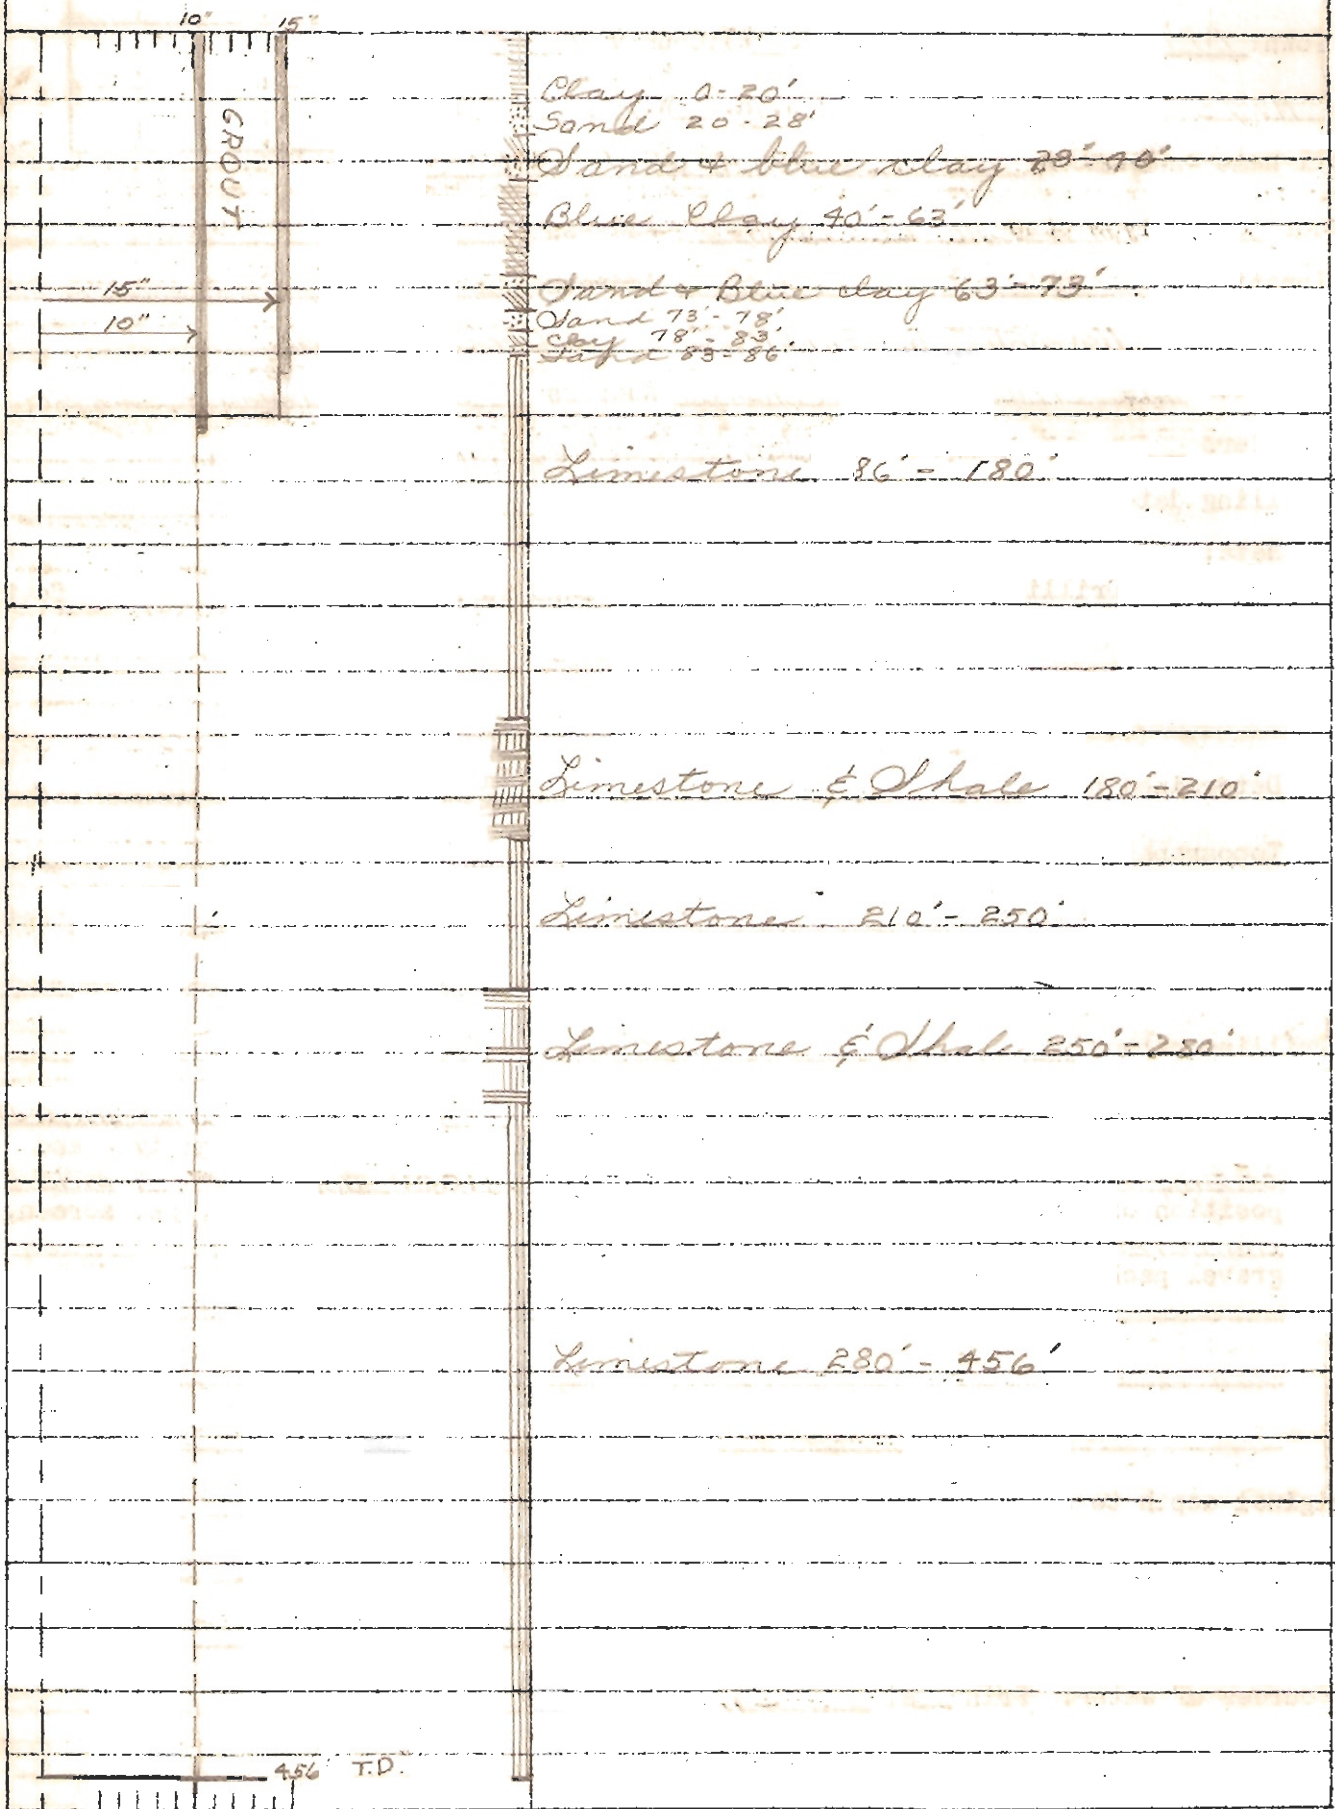 10" 15"
Clay 0-20'
Sand 20-28'
GROUT
Sand & blue clay 28'-40'
Blue Clay 40'-63'
15"
Sand & Blue clay 63'-73'
10"
Sand 73'-78'
Clay 78'-83'
Sand 83-86'
Limestone 86'-180'
Limestone & Shale 180'-210'
Limestone 210'-250'
Limestone & Shale 250'-280'
Limestone 280'-456'
456' T.D.